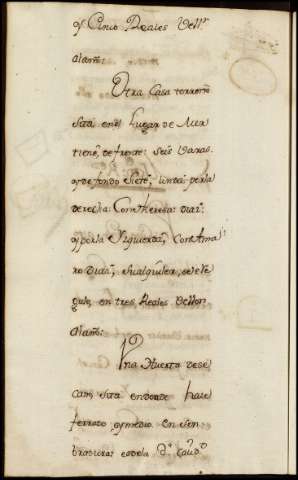 y Cinco Reales Vell.ⁿ
alam.º
Otra Casa terreña
sita en el Lugar de Mar
tiene, de frente: seis Varas
y de fondo Siete, linda: por la
derecha: Con theresa: Diaz:
y por la Izquierda, Con Ama
ro Diaz, su alquiler, se le re
gula, en tres Reales Vellon
alam.º:
Una Huerta de se
cam, sita en donde haie
ferrado, y medio. En sem
bradura: es de la